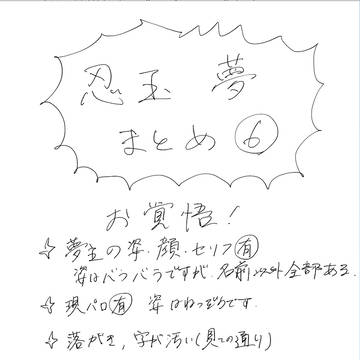 忍玉 夢
まとめ⑥
お覚悟!
☆ 夢主の姿・顔・セリフ㊒
姿はバラバラですが、名前以外全部ある。
☆ 現パロ㊒ 姿はねつぞうです
☆ 落がき、字が汚い(見ての通り)